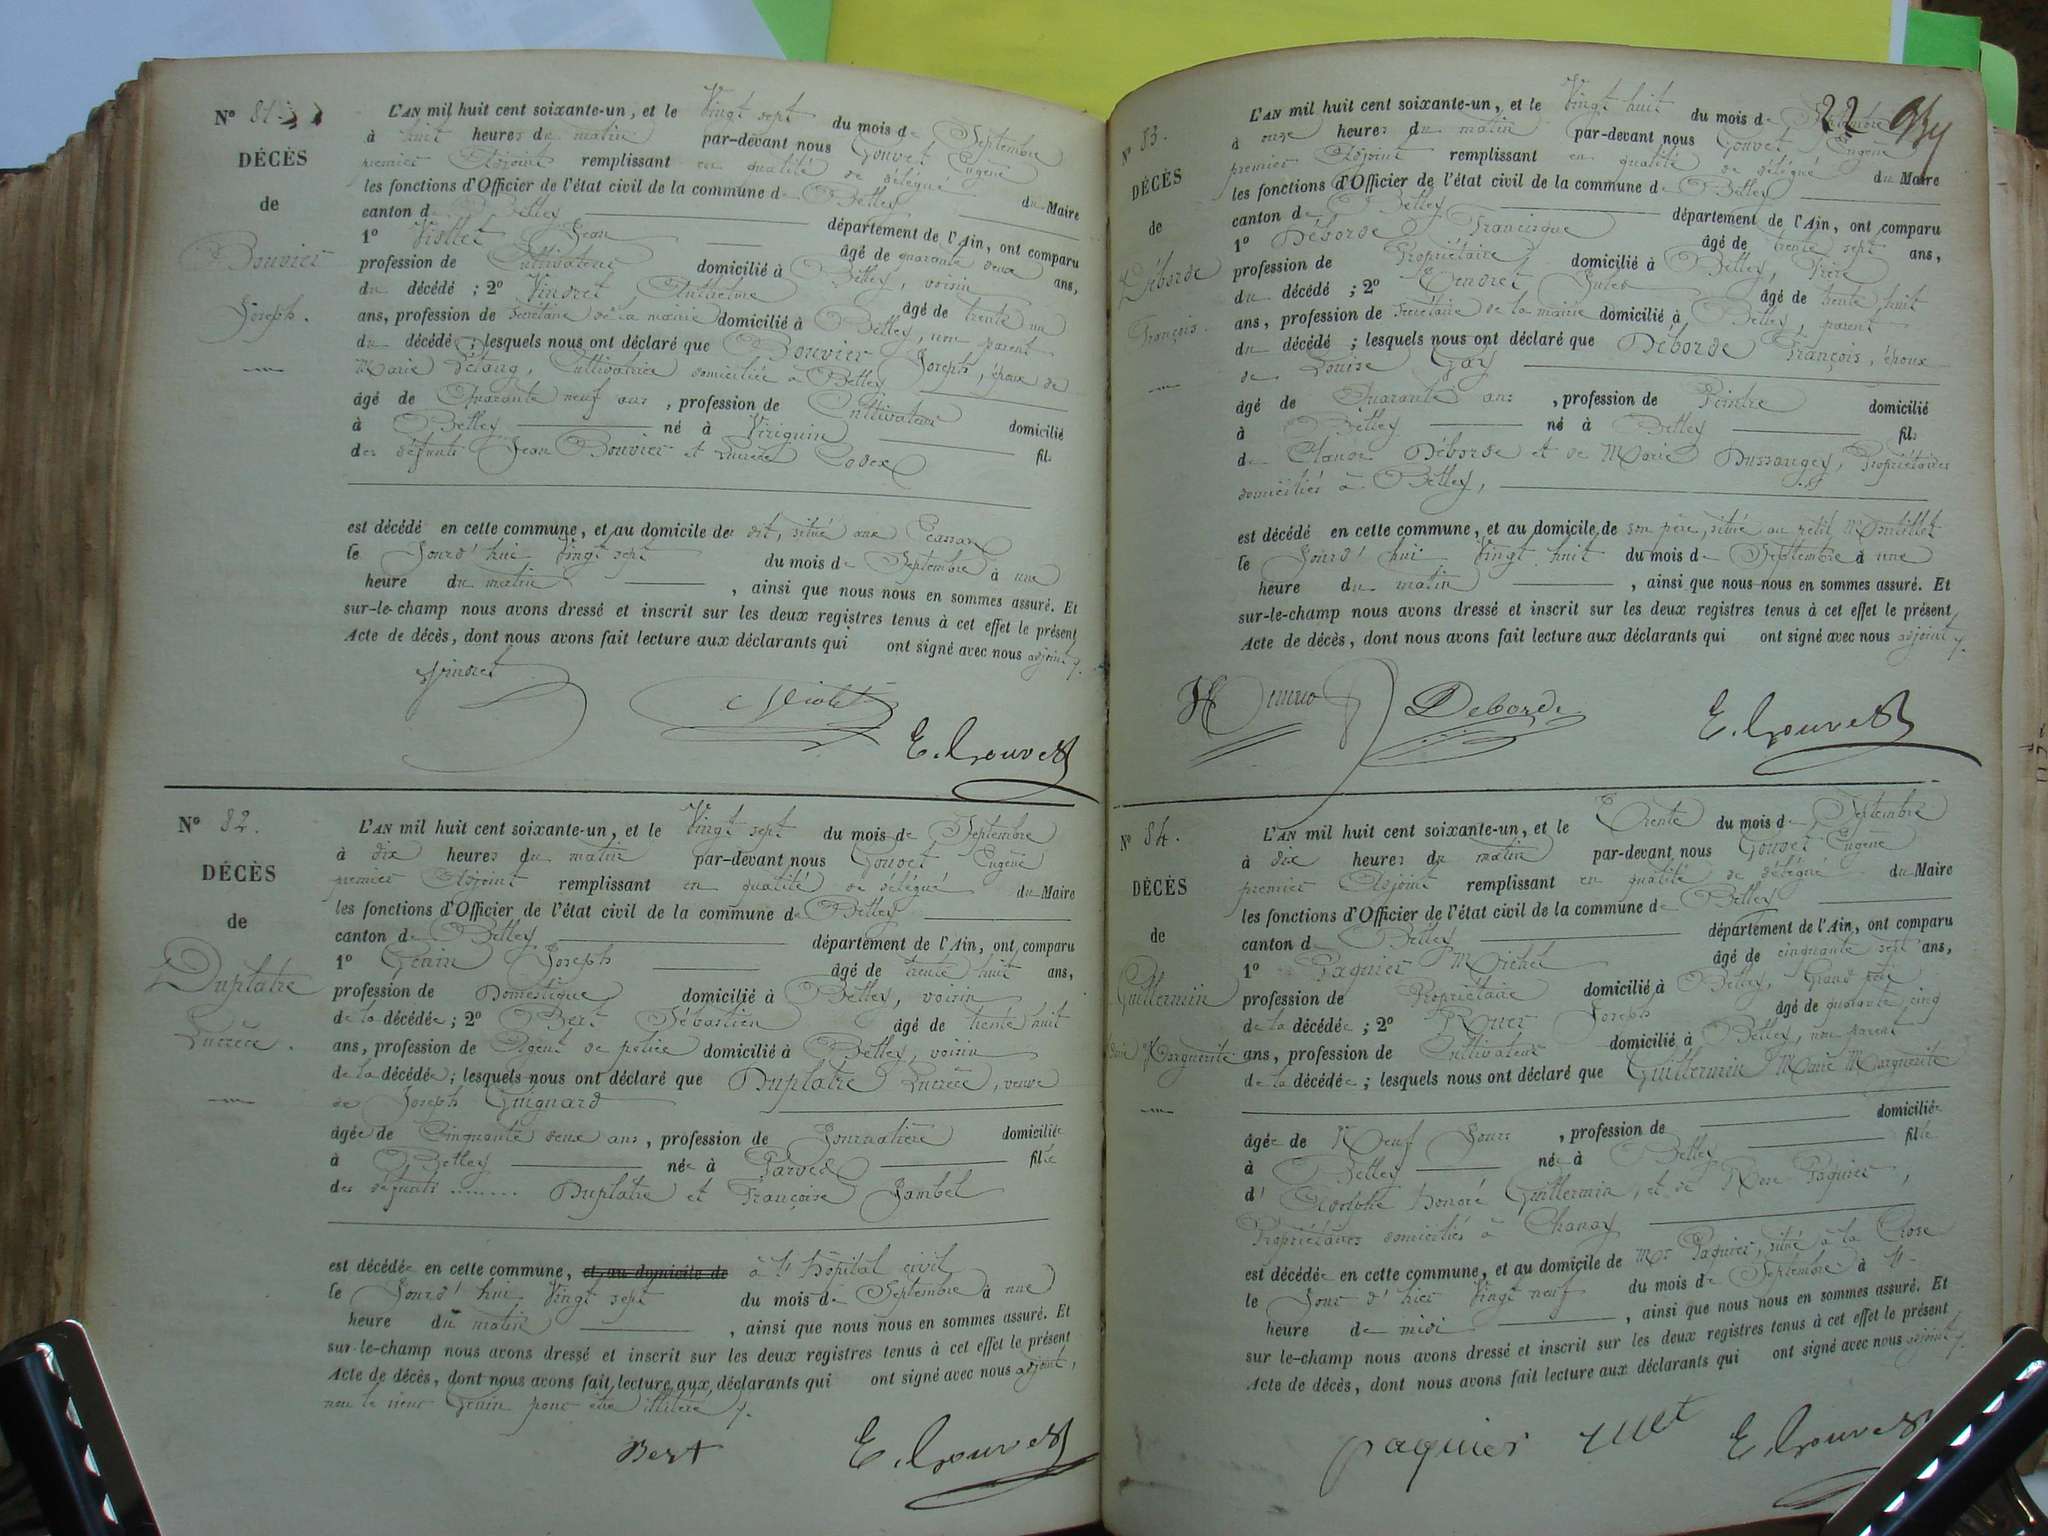 N° 81
DÉCÈS
de
Bouvier
Joseph.
L'AN mil huit cent soixante-un, et le Vingt sept du mois de Septembre
à huit heures du matin par-devant nous Gouvet Eugène
premier Adjoint remplissant en qualité de délégué du Maire
les fonctions d'Officier de l'état civil de la commune de Belley
canton de Belley département de l'Ain, ont comparu
1° Viollet Jean âgé de quarante deux ans,
profession de Cultivateur domicilié à Belley, voisin
du décédé ; 2° Vindret Anthelme âgé de trente un
ans, profession de Secrétaire de la mairie domicilié à Belley, non parent
du décédé ; lesquels nous ont déclaré que Bouvier Joseph, époux de
Marie Détang, Cultivatrice domiciliée à Belley
âgé de Quarante neuf ans, profession de Cultivateur domicilié
à Belley né à Virignin fils
des défunts Jean Bouvier et Lucrèce Codex
est décédé en cette commune, et au domicile de dit, situé aux
le Jourd'hui Vingt sept du mois de Septembre à une
heure du matin, ainsi que nous nous en sommes assuré. Et
sur-le-champ nous avons dressé et inscrit sur les deux registres tenus à cet effet le présent
Acte de décès, dont nous avons fait lecture aux déclarants qui ont signé avec nous adjoint
Vindret Violet
E. Gouvet
N° 82.
DÉCÈS
de
Duplatre
Lucrèce.
L'AN mil huit cent soixante-un, et le Vingt sept du mois de Septembre
à dix heures du matin par-devant nous Gouvet Eugène
premier Adjoint remplissant en qualité de délégué du Maire
les fonctions d'Officier de l'état civil de la commune de Belley
canton de Belley département de l'Ain, ont comparu
1° Genin Joseph âgé de trente huit ans,
profession de Domestique domicilié à Belley, voisin
de la décédée ; 2° Bert Sébastien âgé de trente huit
ans, profession de Agent de police domicilié à Belley, voisin
de la décédée ; lesquels nous ont déclaré que Duplatre Lucrèce, veuve
de Joseph Guignard
âgée de Cinquante deux ans, profession de Journalière domiciliée
à Belley née à Parves fille
des défunts ........ Duplatre et Françoise Jambel
est décédée en cette commune, et au domicile de à l'hôpital civil
le Jourd'hui Vingt sept du mois de Septembre à une
heure du matin, ainsi que nous nous en sommes assuré. Et
sur-le-champ nous avons dressé et inscrit sur les deux registres tenus à cet effet le présent
Acte de décès, dont nous avons fait lecture aux déclarants qui ont signé avec nous adjoint,
non le sieur Genin pour être illitéré
Bert E. Gouvet
22
N° 83.
DÉCÈS
de
Déborde
François.
L'AN mil huit cent soixante-un, et le Vingt huit du mois de Septembre
à onze heures du matin par-devant nous Gouvet Eugène
premier Adjoint remplissant en qualité de délégué du Maire
les fonctions d'Officier de l'état civil de la commune de Belley
canton de Belley département de l'Ain, ont comparu
1° Déborde Francisque âgé de trente sept ans,
profession de Propriétaire domicilié à Belley, frère
du décédé ; 2° Jules âgé de trente huit
ans, profession de Secrétaire de la mairie domicilié à Belley, parent
du décédé ; lesquels nous ont déclaré que Déborde François, époux
de Louise Gay
âgé de Quarante ans, profession de Peintre domicilié
à Belley né à Belley fils
de Claude Déborde et de Marie Dussangey, Propriétaires
domiciliés à Belley,
est décédé en cette commune, et au domicile de son père, situé au petit Montillet
le Jourd'hui Vingt huit du mois de Septembre à une
heure du matin, ainsi que nous nous en sommes assuré. Et
sur-le-champ nous avons dressé et inscrit sur les deux registres tenus à cet effet le présent
Acte de décès, dont nous avons fait lecture aux déclarants qui ont signé avec nous adjoint
Deborde E. Gouvet
N° 84.
DÉCÈS
de
Guillermin
Marie Marguerite
L'AN mil huit cent soixante-un, et le Trente du mois de Septembre
à dix heures du matin par-devant nous Gouvet Eugène
premier Adjoint remplissant en qualité de délégué du Maire
les fonctions d'Officier de l'état civil de la commune de Belley
canton de Belley département de l'Ain, ont comparu
1° Paquier Michel âgé de cinquante sept ans,
profession de Propriétaire domicilié à Belley, Grand père
de la décédée ; 2° Joseph âgé de quarante cinq
ans, profession de Cultivateur domicilié à Belley, non parent
de la décédée ; lesquels nous ont déclaré que Guillermin Marie Marguerite
âgée de Neuf Jours, profession de domiciliée
à Belley née à Belley fille
d'Adolphe honoré Guillermin, et de Rose Paquier,
Propriétaires domiciliés à Chanay
est décédée en cette commune, et au domicile de Mr Paquier, situé à la Crose
le Jour d'hier Vingt neuf du mois de Septembre à
heure de midi, ainsi que nous nous en sommes assuré. Et
sur le-champ nous avons dressé et inscrit sur les deux registres tenus à cet effet le présent
Acte de décès, dont nous avons fait lecture aux déclarants qui ont signé avec nous adjoint
paquier E. Gouvet